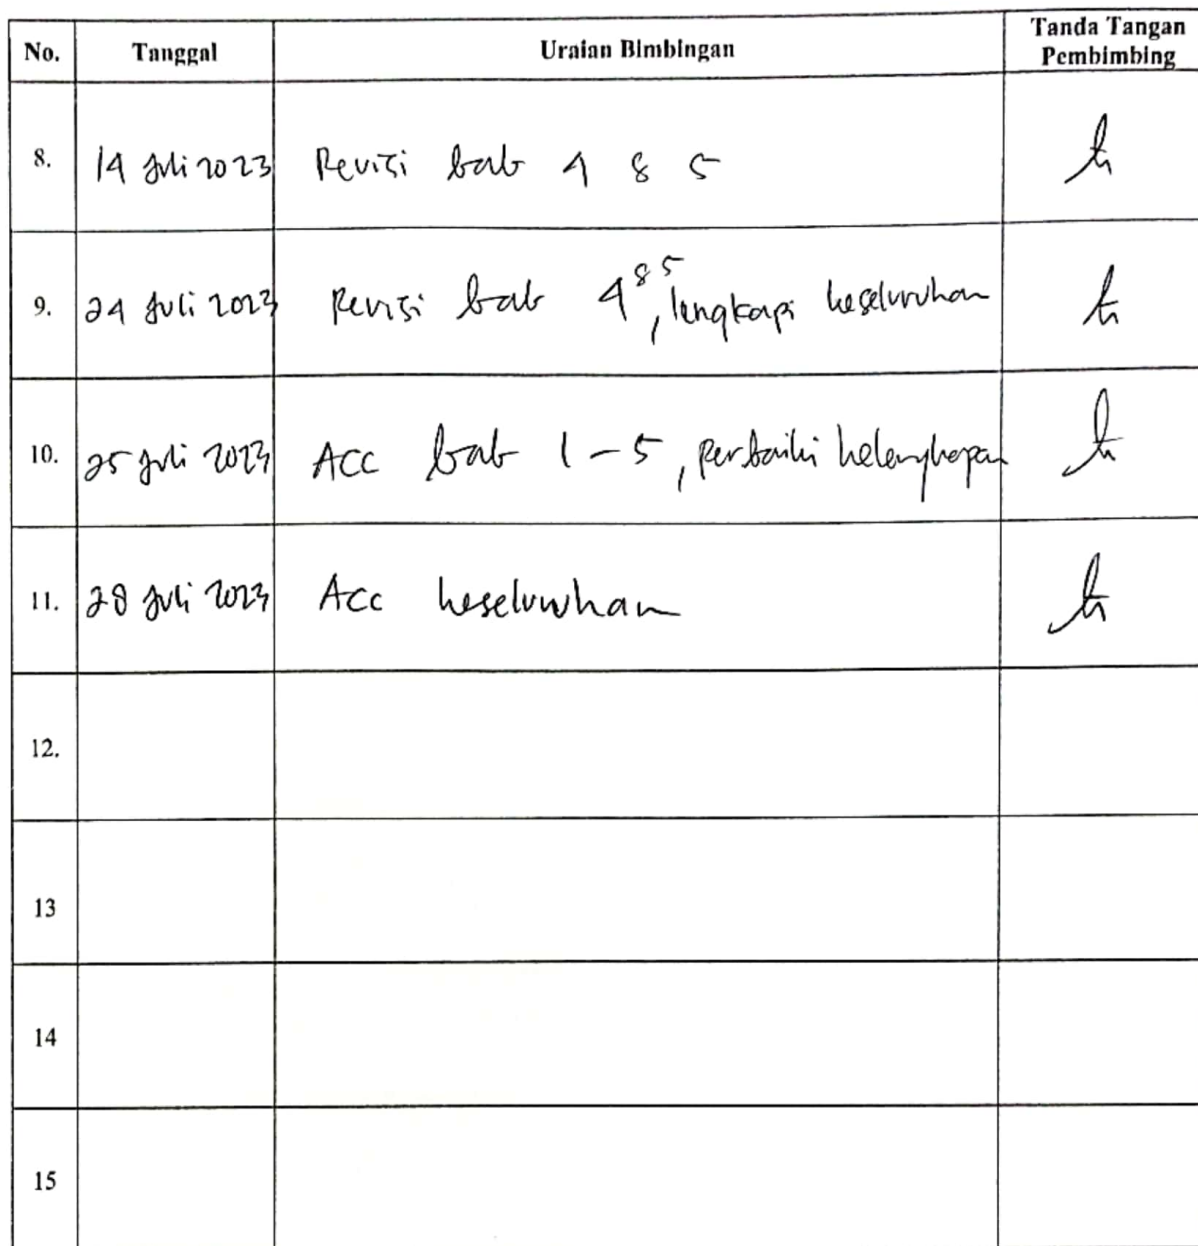 No. Tanggal Uraian Bimbingan Tanda Tangan
Pembimbing
8. 14 Juli 2023 Revisi bab 4 & 5
9. 24 Juli 2023 Revisi bab 4 & 5, lengkapi keseluruhan
10. 25 Juli 2023 ACC bab 1-5, perbaiki kelengkapan
11. 28 Juli 2023 Acc keseluruhan
12.
13
14
15